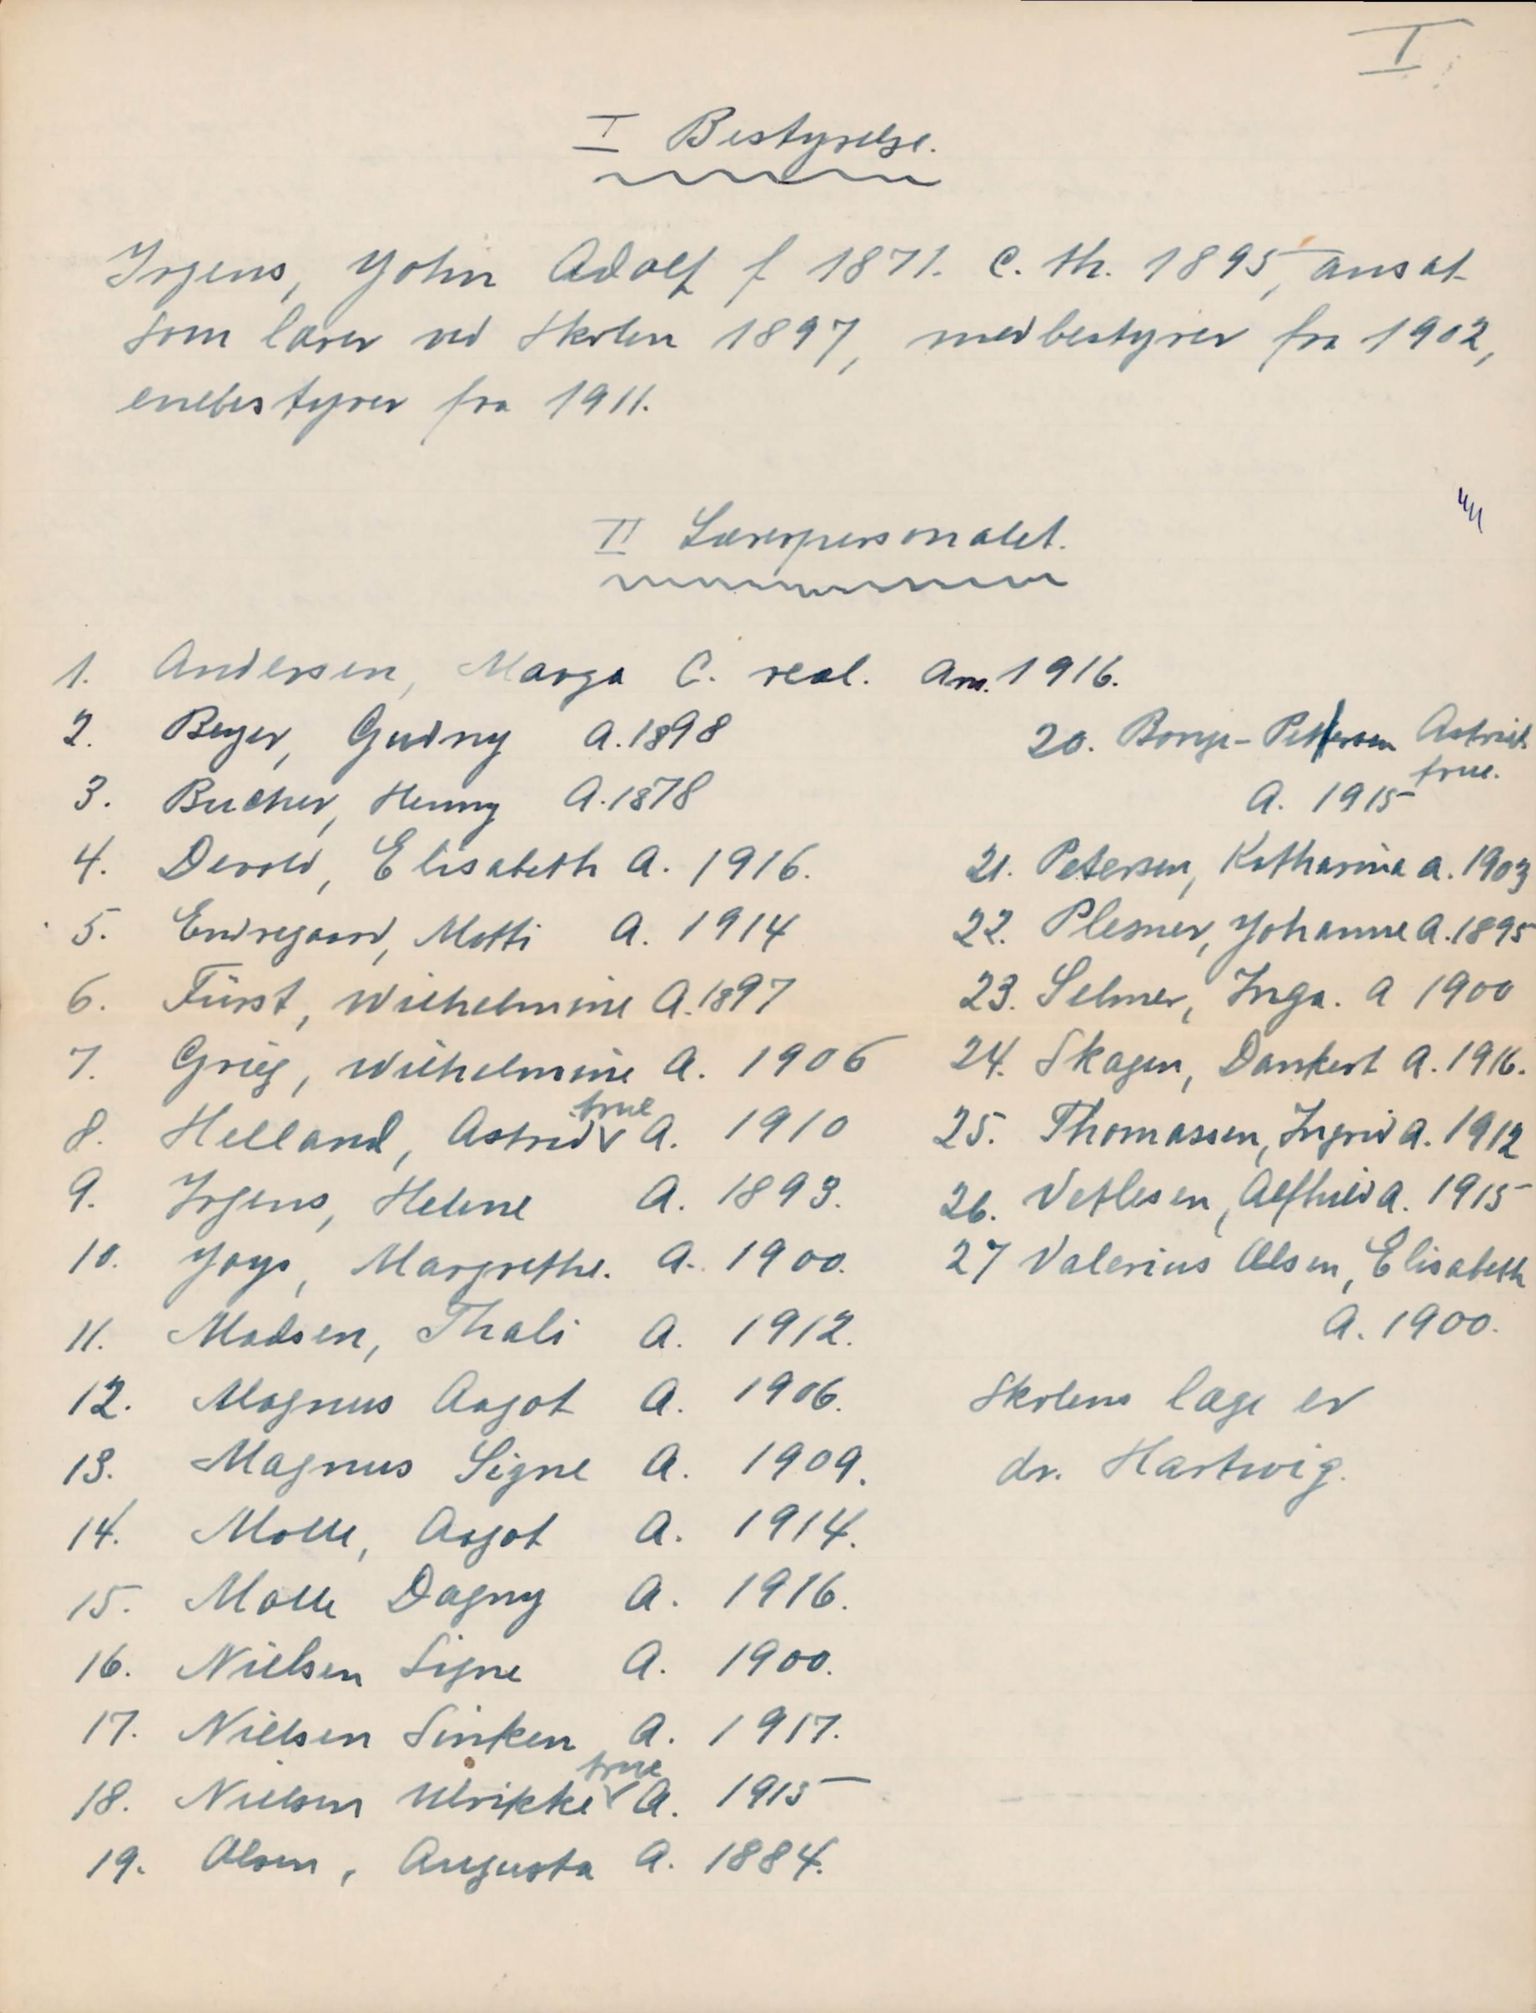 I
I Bestyrelse.
Irgens, John Adolf f 1871. C. th. 1895, ansat
som lærer ved skolen 1897, medbestyrer fra 1902,
enebestyrer fra 1911.
II Lærerpersonalet.
1. Andersen, Marga C. real. Ans. 1916.
2. Beyer, Gudny A. 1898
3. Bucher, Henny A. 1878
4. Devold, Elisabeth A. 1916.
5. Endregaard, Motti A. 1914
6. Fürst, Wilhelmine A. 1897
7. Grieg, Wilhelmine A. 1906
8. Helland, Astrid frue A. 1910
9. Irgens, Helene A. 1893.
10. Joys, Margrethe. A. 1900.
11. Madsen, Thali A. 1912.
12. Magnus Aagot A. 1906.
13. Magnus Signe A. 1909.
14. Molle, Aagot A. 1914.
15. Molle Dagny A. 1916.
16. Nielsen Signe A. 1900.
17. Nielsen Sinken A. 1917.
18. Nielsen Ulrikke frue A. 1915
19. Olsen, Augusta A. 1884.
20. Borge-Petersen Astrid
frue.
A. 1915
21. Petersen, Katharina A. 1903
22. Plesner, Johanne A. 1895
23. Selmer, Inga. A 1900
24. Skagen, Dankert A. 1916.
25. Thomassen, Ingrid A. 1912
26. Vetlesen, Alfhild A. 1915
27 Valerius Olsen, Elisabeth
A. 1900.
Skolens læge er
dr. Hartwig.